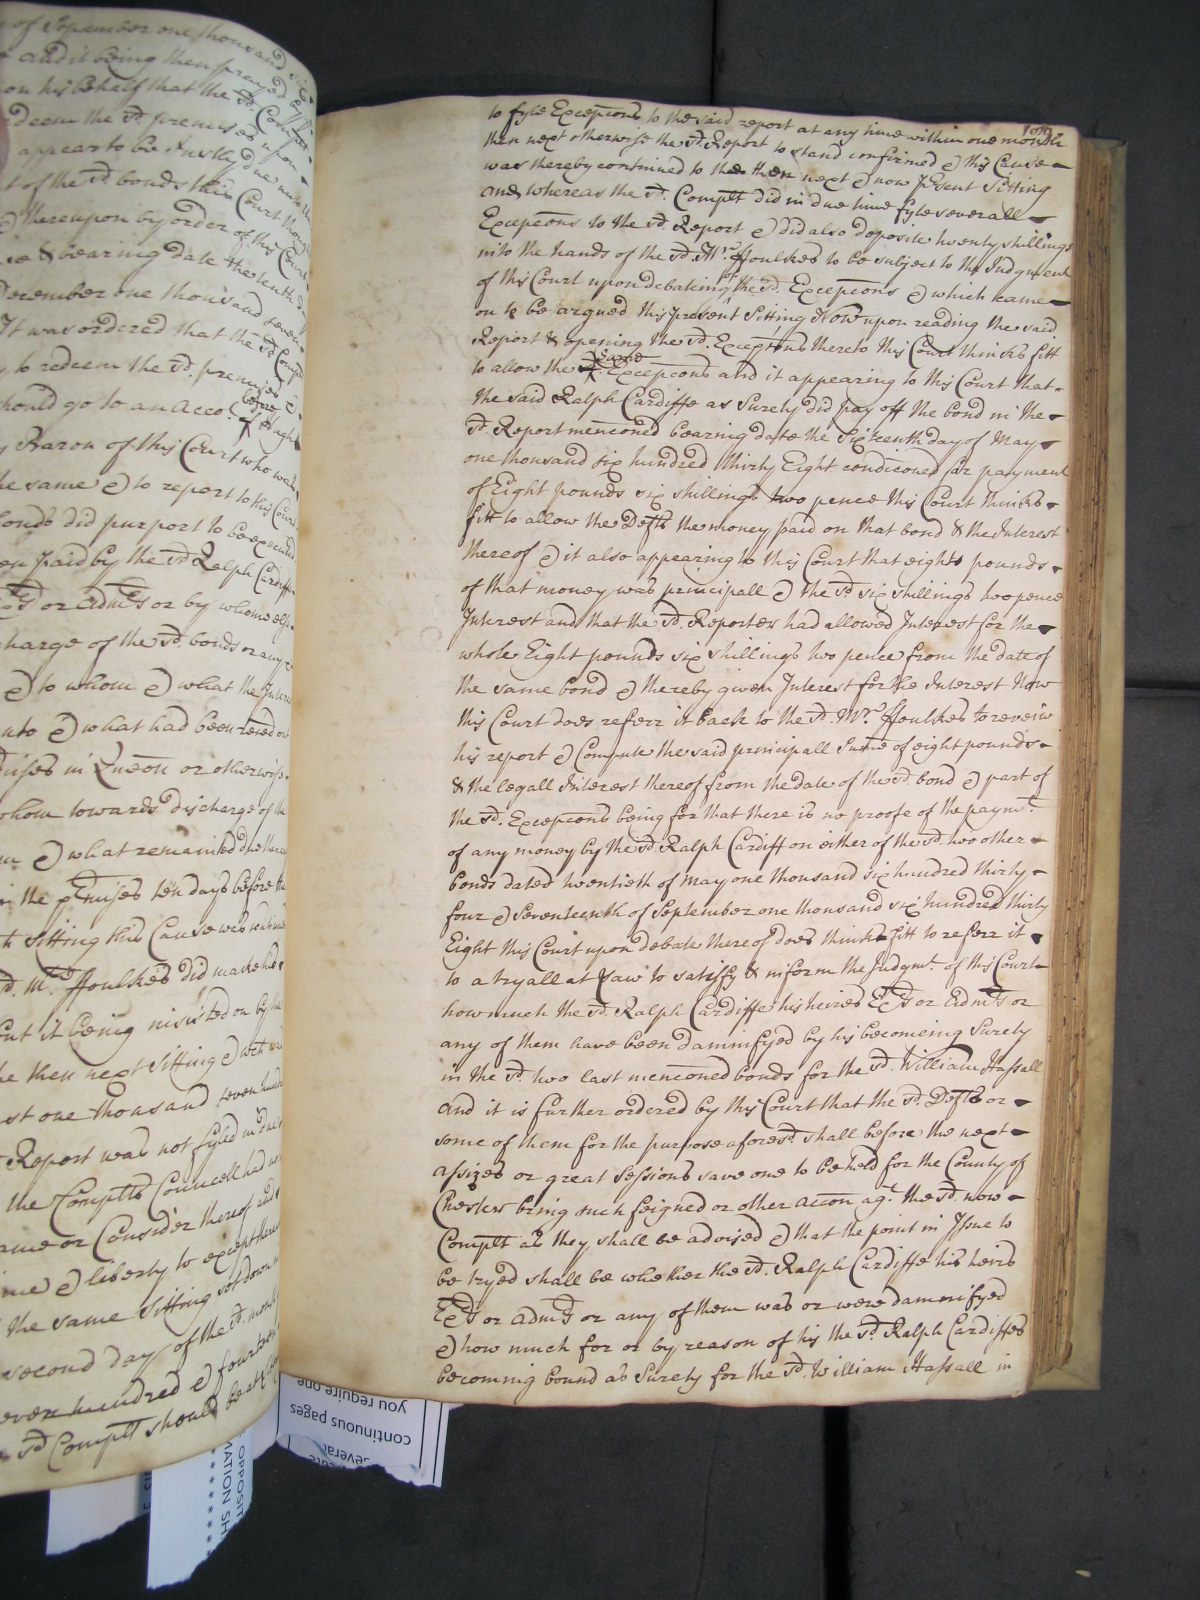 of September one thousand six
and it being then prayed by
on his behalf that the sd. Complt
deem the sd. premises upon
appear to be Justly due unto
t of the sd. bonds this Court
thereupon by order of this Court
& bearing date the tenth
December one thousand seven
It was ordered that the sd. Complt
to redeem the sd. premises &
should go to an Acco. before Hugh
Baron of this Court who was
the same & to report to this Court
bonds did purport to be
paid by the sd. Ralph Cardiff
or Admrs or by whome else
charge of the sd. bonds or any
& to whom & what the
& what had been
in Queōn or otherwise
whom towards discharge of the
& what remained due
in the pr̄mises ten days before the
sitting this Cause was
sd. Mr. ffoulkes did make his
but it being insisted on by the
the then next Sitting & wch was
st one thousand seven hundred
Report was not fyled in due
the Complts Councell had not
or Consider thereof and
& liberty to except thereto
the same Sitting set down
second day of the sd. month
seven hundred & fourteen
sd Complt should be at
to fyle Excepcons to the said report at any time within one month
then next otherwise the sd. Report to stand confirmed & this Cause
was thereby continued to the then next & now pr̄sent Sitting
and whereas the sd. Complt did in due time fyle severall
Excepcons to the sd. Report & did also deposite twenty shillings
into the hands of the sd. Mr. ffoulkes to be subject to the Judgment
of this Court upon debateing of the sd. Excepcons & which came
on to be argued this present Sitting Now upon reading the said
Report & opening the sd. Excepcons thereto this Court thinks fitt
to allow the same Excepcons and it appearing to this Court that
the said Ralph Cardiffe as Surety did pay off the bond in the
sd. Report mencōned bearing date the Sixteenth day of May
one thousand six hundred thirty Eight condiconed for payment
of Eight pounds six shillings two pence this Court thinks
fitt to allow the Defts the money paid on that bond & the Interest
thereof & it also appearing to this Court that eight pounds
of that money was principall & the sd six shillings two pence
Interest and that the sd. Reporter had allowed Interest for the
whole Eight pounds six shillings two pence from the date of
the same bond & thereby given Interest for the Interest Now
this Court does referr it back to the sd. Mr. ffoulkes to reveiw
his report & Compute the said principall Sume of eight pounds
& the legall Interest thereof from the date of the sd. bond & part of
the sd. Excepcons being for that there is no proofe of the paymt.
of any money by the sd. Ralph Cardiff on either of the sd. two other
bonds dated twentieth of May one thousand six hundred thirty
four & Seventeenth of September one thousand six hundred thirty
Eight this Court upon debate thereof does think fitt to referr it
to a tryall at Law to satisfy & inform the Judgmt. of this Court
how much the sd. Ralph Cardiffe his heires Exrs or Admrs or
any of them have been damnifyed by his becomeing Surety
in the sd. two last mencōned bonds for the sd. William Hassall
and it is further ordered by this Court that the sd. Defts or
some of them for the purpose aforesd. shall before the next
assizes or great Sessions save one to be held for the County of
Chester bring such feigned or other accōn agt. the sd. now
Complt as they shall be advised & that the point in Issue to
be tryed shall be whether the sd. Ralph Cardiffe his heirs
Exrs or Admrs or any of them was or were damnifyed
& how much for or by reason of his the sd. Ralph Cardiffes
becoming bound as Surety for the sd. William Hassall in
you require one
continuous pages
several
OPPOSIT
MATION SH